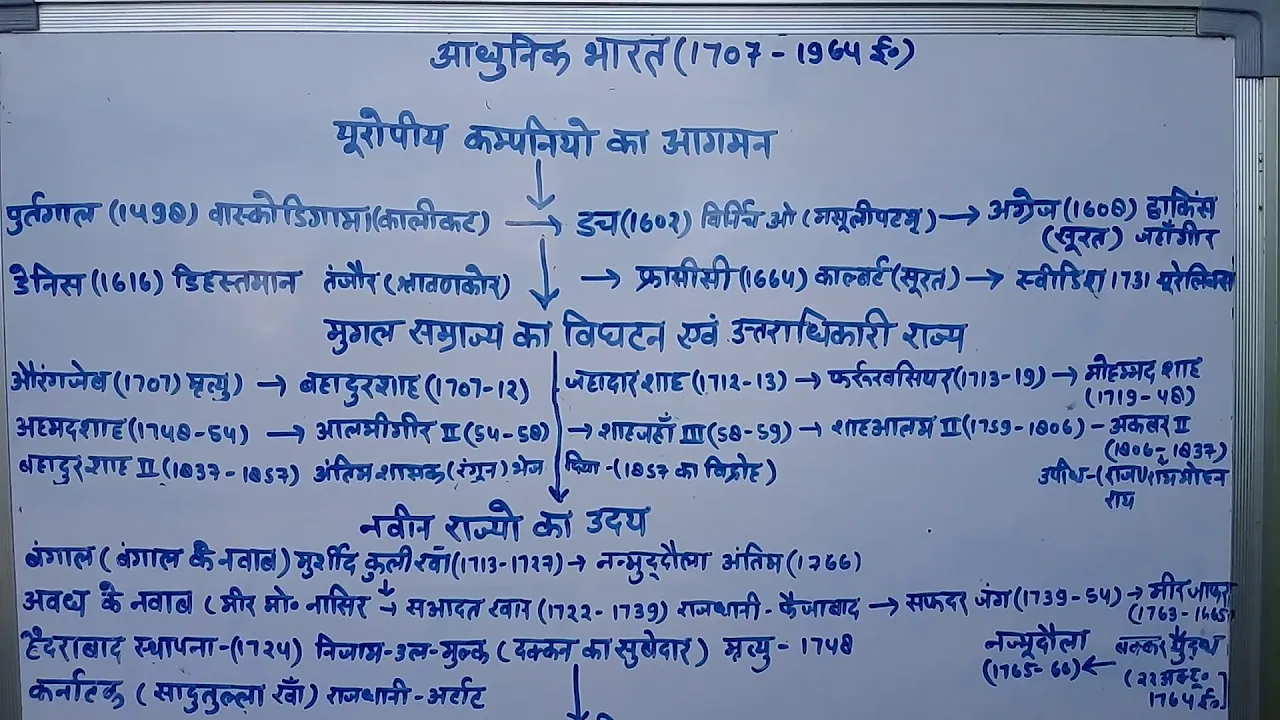 आधुनिक भारत (1707 - 1964 ई०)
यूरोपीय कम्पनियो का आगमन
पुर्तगाल (1498) वास्कोडिगामा (कालीकट) → डच (1602) ओ (मसूलीपटम्) → अग्रेज (1608) हाकिंस
(सूरत) जहाँगीर
डेनिस (1616) डिहस्तमान तंजौर (त्रावणकोर) → फ्रासीसी (1664) काल्बर्ट (सूरत) → स्वीडिश 1731
मुगल सम्राज्य का विघटन एवं उत्तराधिकारी राज्य
औरंगजेब (1707) मृत्यु) → बहादुरशाह (1707-12) जहादारशाह (1712-13) → फर्रूखसियर (1713-19) → मोहम्मद शाह
(1719-48)
अहमदशाह (1748-54) → आलमीगीर II (54-58) → शाहजहाँ III (58-59) → शाहआलम II (1759-1806) - अकबर II
(1806-1837)
बहादुरशाह II (1837-1857) अंतिम शासक (रंगून) भेज दिया - (1857 का विद्रोह) उपाधि - (राजा राममोहन
राय
नवीन राज्यो का उदय
बंगाल (बंगाल के नवाब) मुर्शीद कुली खाँ (1713-1727) → नन्मुद्दौला अंतिम (1766)
अवध के नवाब (मीर मो० नासिर → सआदत खान (1722-1739) राजधानी - फैजाबाद → सफदर जंग (1739-54) → मीर जाफर
(1763-1465)
हैदराबाद स्थापना - (1724) निजाम-उल-मुल्क (दक्कन का सुबेदार) मृत्यु - 1748 नज्मूदौला बक्कर युद्ध
(1765-66) ← (22 अक्टू०
1764 ई०]
कर्नाटक (सादुतुल्ला खाँ) राजधानी - अर्टाट